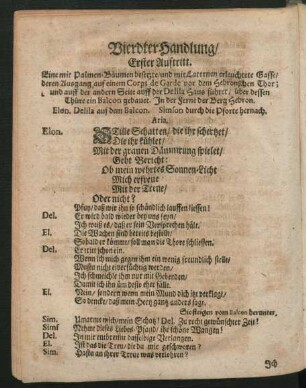 Vierdter Handlung/
Erster Aufftritt.
Eine mit Palmen-Bäumen besetzte und mit Laternen erleuchtete Gasse/
deren Ausgang auf einem Corps de Garde vor dem Hebronischen Thor;
und auff der andern Seite auff der Delila Hauß führet/ über dessen
Thüre ein Balcon gebauet. In der Ferne der Berg Hebron.
Elon. Delila auf dem Balcon. Simson durch die Pforte hernach.
Aria.
Elon. Stille Schatten/ die ihr schertzet/
Die ihr kühlet/
Mit der grauen Dämmrung spielet/
Gebt Bericht:
Ob mein wehrtes Sonnen-Licht
Mich erfreut
Mit der Treue/
Oder nicht?
Pfuy/ daß wir ihn so schändlich lauffen liessen!
Del. Er wird bald wieder bey uns seyn/
Ich weiß es/ daß er sein Versprechen hält.
El. Die Wachen sind bereits bestellt/
So bald er kömmt/ soll man die Thore schliessen.
Del. Er trit schon ein.
Wenn ich mich gegen ihm ein wenig freundlich stelle/
Must nicht eifersüchtig werden/
Ich schmeichle ihm nur mit Geberden/
Damit ich ihn um desto eher fälle.
El. Nein/ sondern wenn mein Mund dich itzt verklagt/
So dencke/ daß mein Hertz gantz anders sagt.
Sie steigen vom Balcon herunter.
Sim. Umarme mich/ mein Schatz! Del. Zu recht gewünschter Zeit!
Sims Nehmt dieses Liebes-Pfand/ ihr schöne Wangen!
Del.
El. Ist das die Treu/ die du mir geschworen?
Sim. Hastu an ihrer Treu was verlohren?
Ich